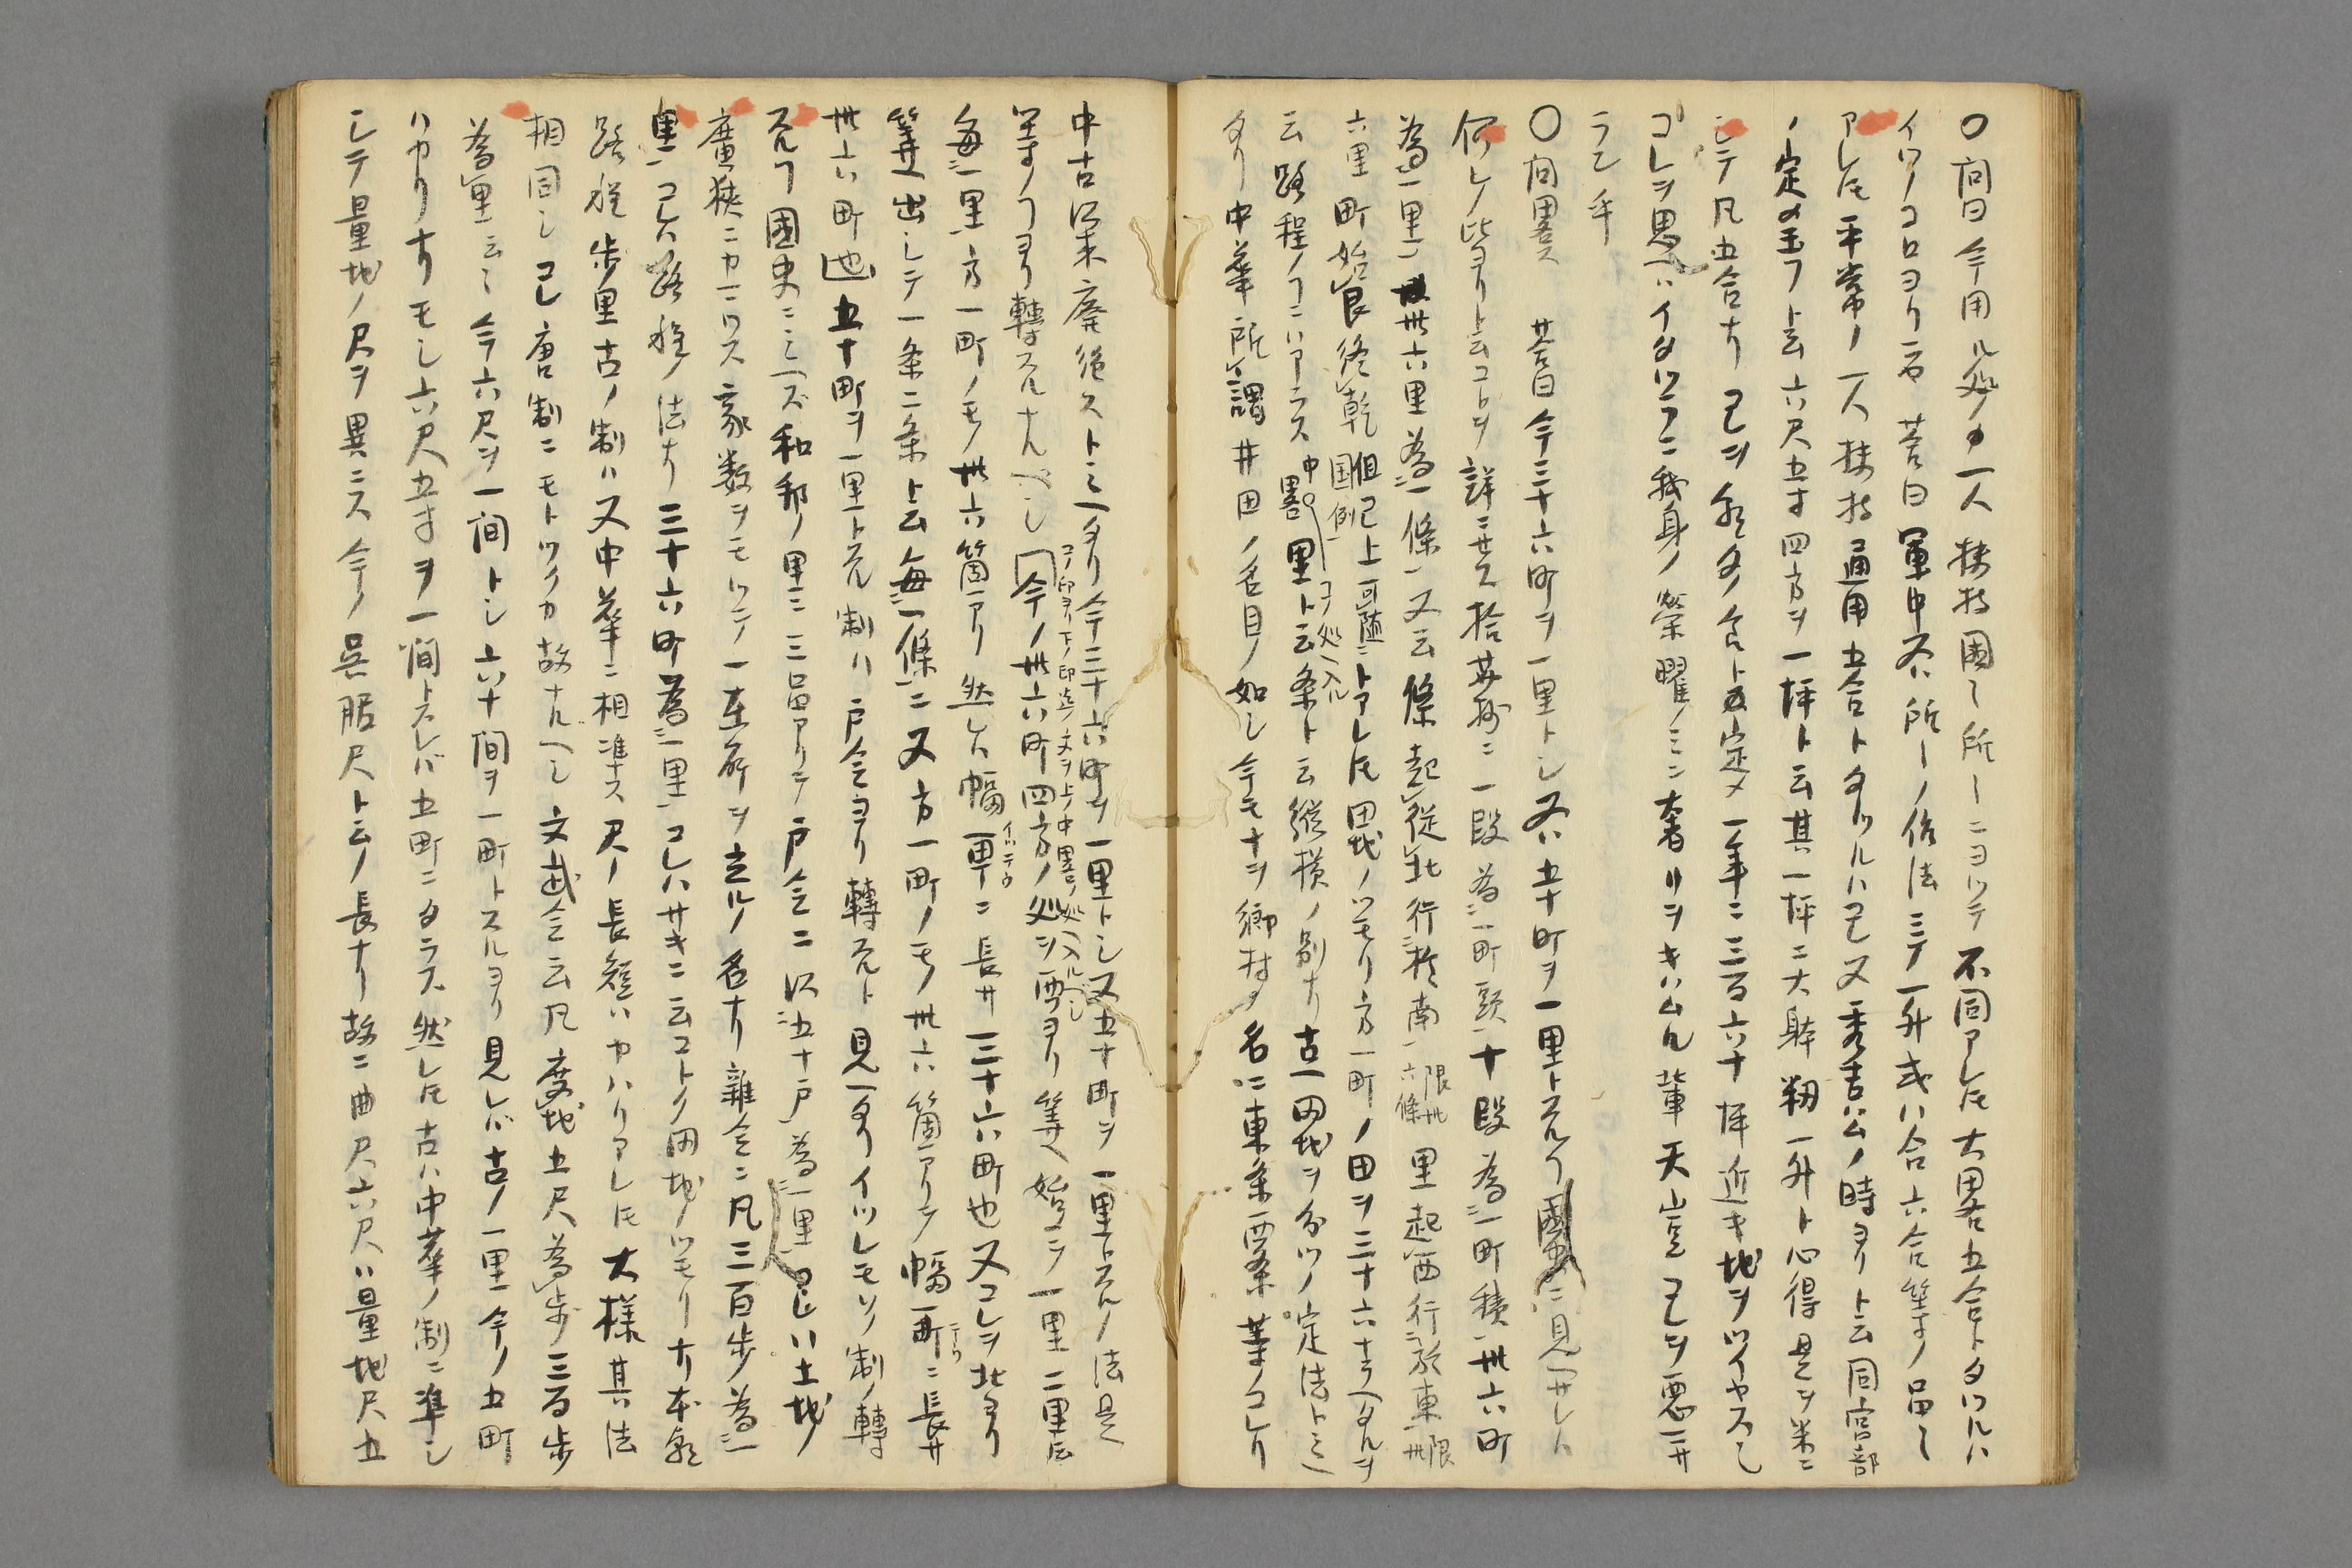 〇問曰今用ル処ノ一人扶持國〻所〻ニヨツテ不同アレ𪜈大畧五合トタツルハ
イツノコロヨリ 荅曰軍中又ハ所〻ノ俗法ニテ一升或ハ合六合等ノ品〻
アレ𪜈平常ノ一人扶持通用五合トタツルハコレ又秀吉公ノ時ヨリト云同宮部
ノ定メ玉フト云六尺五寸四方ヲ一坪ト云其一坪ニ大躰籾一升ト心得是ヲ米ニ
シテ凡五合ナリコレヲ人ノ食ト定メ一年ニ三百六十坪近キ地ヲツイヤスし
コレヲ思ヘハイタツラニ我身ノ榮曜ノミニ奢リヲキハムル輩天豈コレヲ悪ニサ
ラン乎
〇問畧ス 荅曰今三十六町ヲ一里トシ又ハ五十町ヲ一里トスルヿ國史ニ見ヘサレハ
何レノ比ヨリト云コトヲ詳ニセス拾芥抄ニ一段為一町頭十段為一町積卅六町
為一里卅六里為一條又云條起従北行於南限卅六條里起西行於東限卅
六里町始艮終乾但已上可随国例トアレ𪜈田地ノツモリ方一町ノ田ヲ三十六ナラヘタルヲ
云路程ノヿニハアラス中畧コノ処ヘ入ル里ト云条ト云縦横ノ別ナリ古田地ヲ分ツノ定法トミヘ
タリ中華所謂井田ノ名目ノ如シ今モナヲ郷村ノ名ニ東条西条等ノコレリ
中古以来廃絶ストミヘタリ今三十六町ヲ一里トシ又五十町ヲ一里トスルノ法是
等ノヿヨリ轉スルナルヘシコノ印ヨリ下ノ印迄ノ文ヲ上ノ中畧ノ処ヘ入ルヘシ今ノ卅六町四方ノ処ヲ西ヨリ筭ヘ始メテ一里二里云
毎一里方一町ノモノ卅六箇アリ然レハ幅一町ニ長サ三十六町也又コレヲ北ヨリ
筭ヘ出シテ一条二条ト云毎一條ニ又方一町ノモノ卅六箇アリテ幅一町ニ長サ
卅六町也五十町ヲ一里トスル制ハ戸令ヨリ轉スルト見ヘタリイツレモソノ制ノ轉
スルヿ國史ニミヘズ和邦ノ里ニ三品アリテ戸令ニ以五十戸為一里コレハ土地ノ
廣狭ニカヽワラス家数ヲモツテ一在所ヲ立ルノ名ナリ雜令ニ凡三百歩為一
里コレハ路程ノ法ナリ三十六町為一里コレハサキニ云コトク田地ノツモリナリ本朝
路程歩里古ノ制ハ又中華ニ相準ス尺ノ長短ハカハリアレ𪜈大様其法
相同シコレ唐制ニモトツクカ故ナルヘシ文武令云凡度地五尺為歩三百歩
為里云〻今六尺ヲ一間トシ六十間ヲ一町トスルヨリ見レバ古ノ一里今ノ五町
ハカリナリモシ六尺五寸ヲ一間トスレバ五町ニタラス然レ𪜈古ハ中華ノ制ニ準シ
シテ量地ノ尺ヲ異ニス今ノ呉服尺ト云ノ長ナリ故ニ曲尺六尺ハ量地尺五